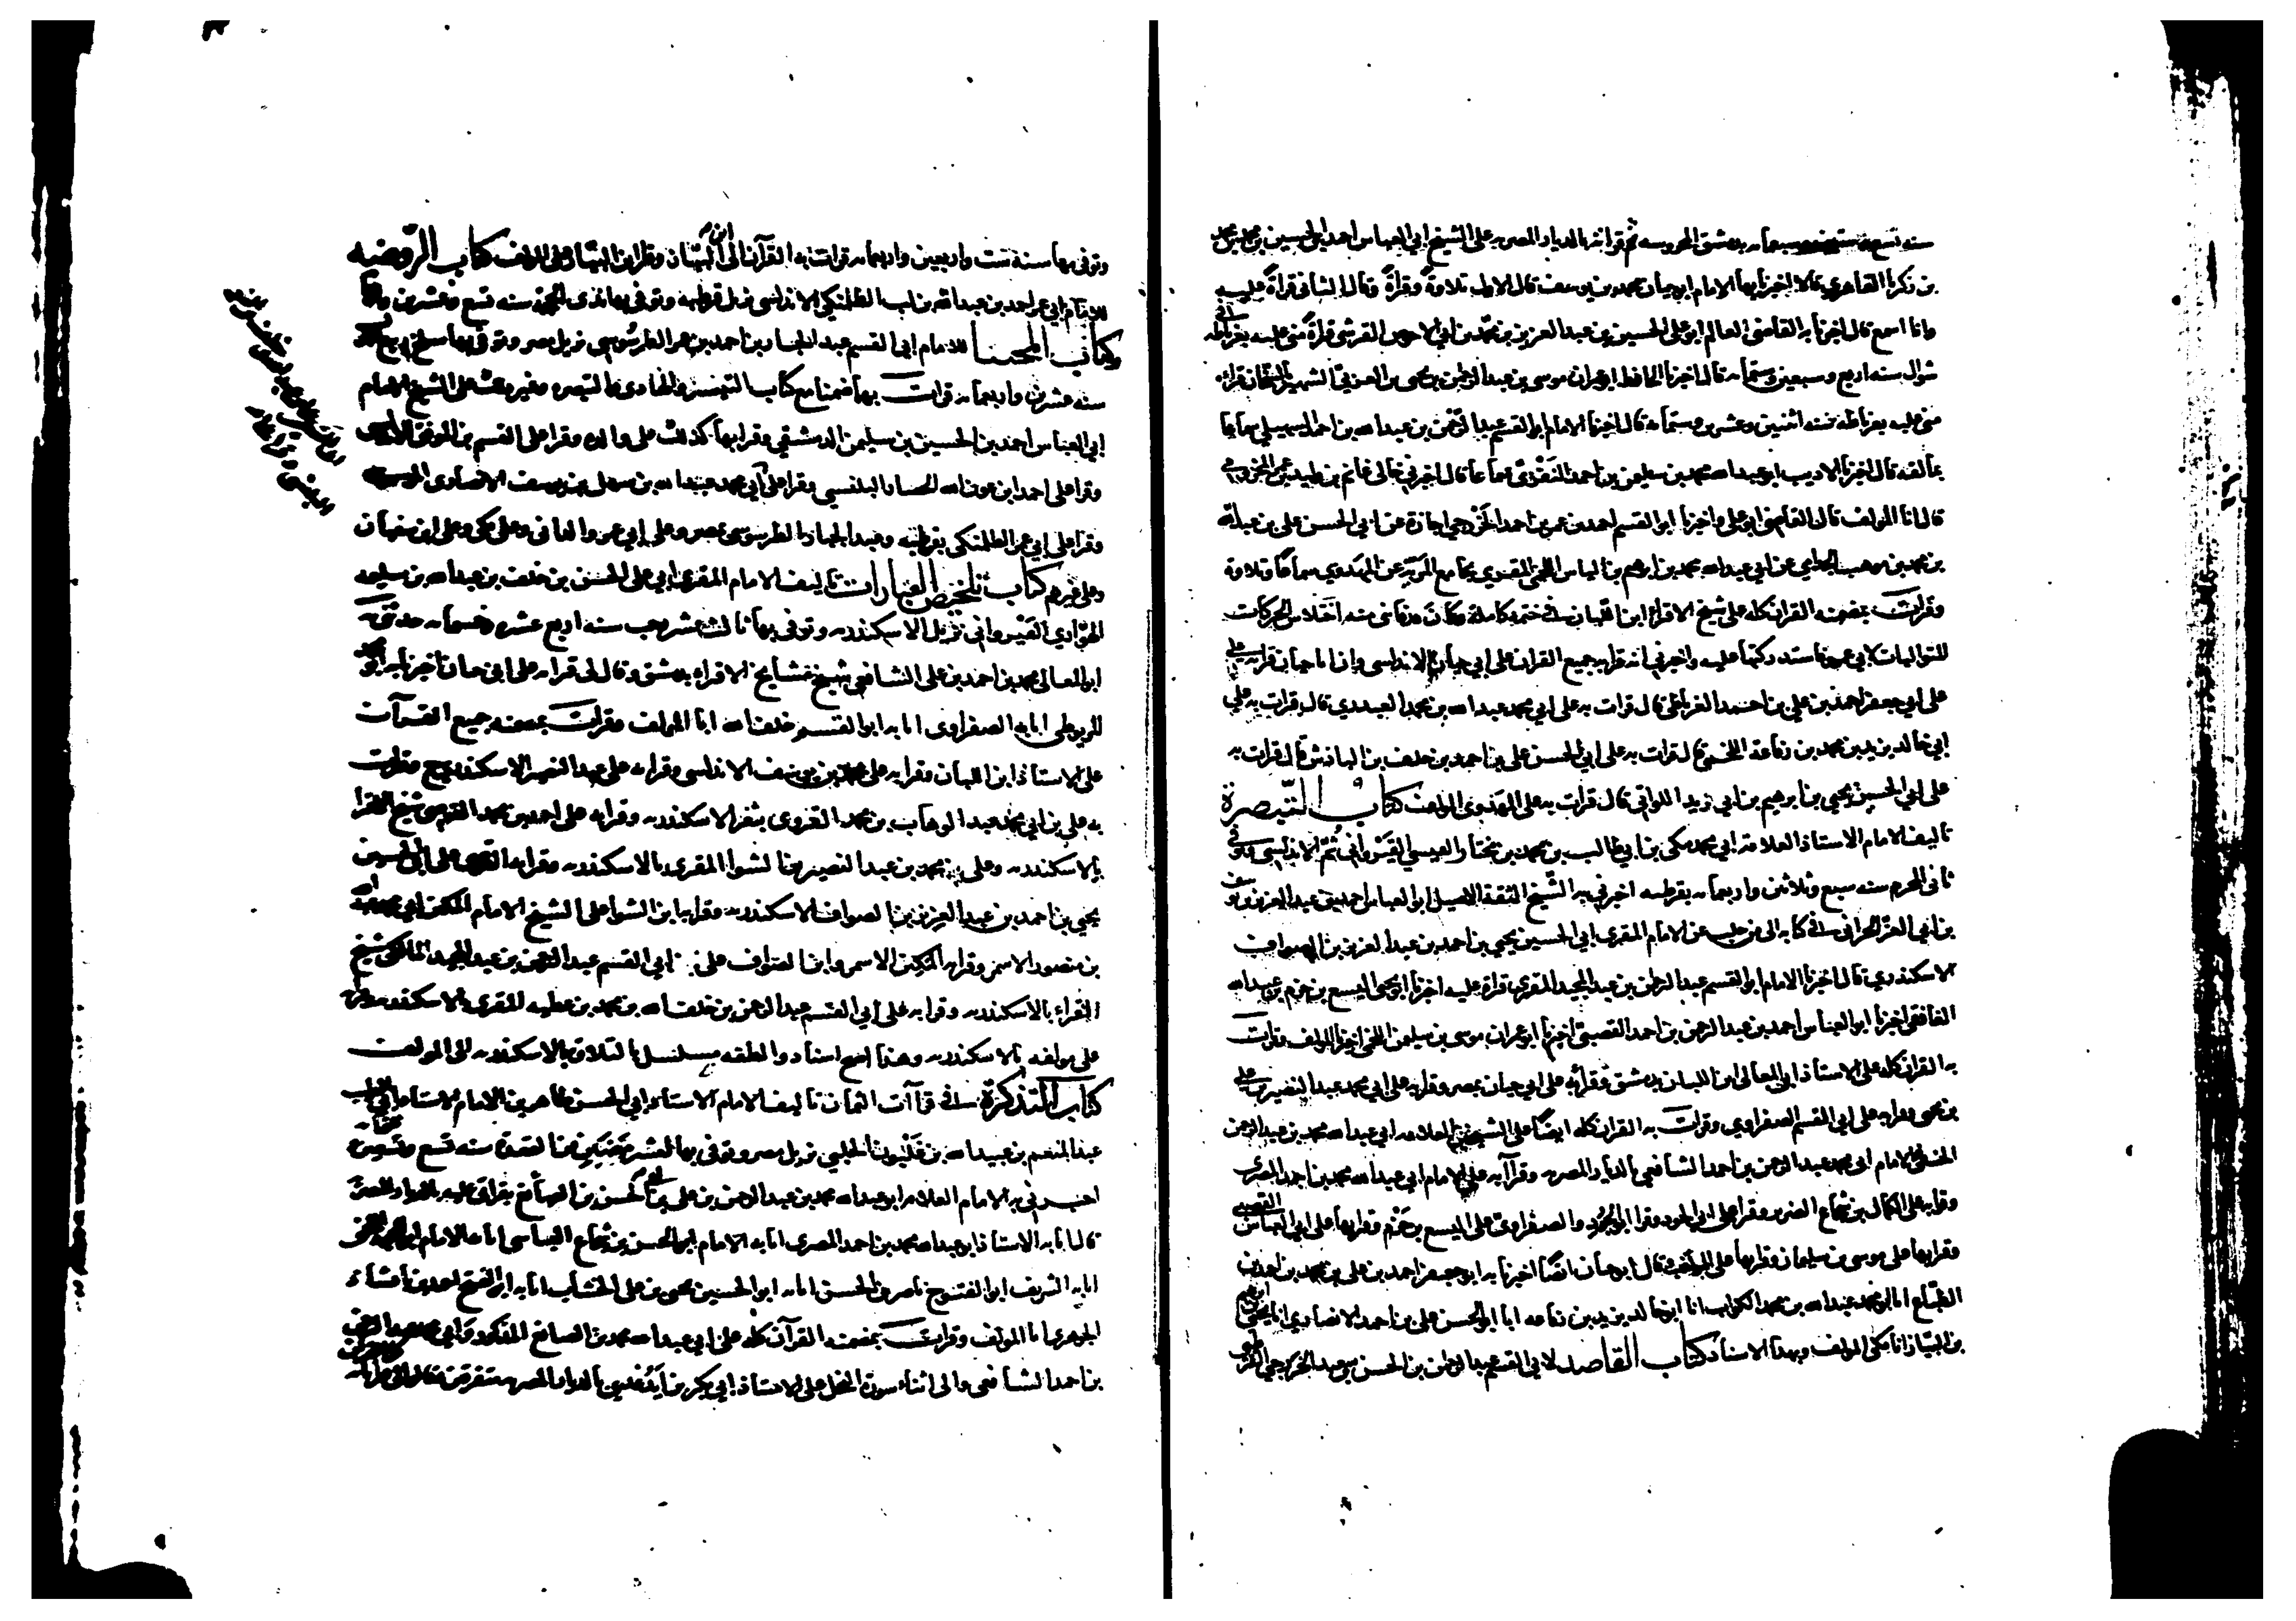 سنه تسع وستين وسبعمايه بدمشق المحروسه ثم قراته بالديار المصريه على الشيخ ابي العباس احمد بن الحسين بن محمد بن محمد
بن زكريا القاهري قالا اخبرنا بها الامام ابو حيان محمد بن يوسف قال الاول تلاوةً وقراةً وقال الثاني قراةً عليه
وانا اسمع قال اخبرنا به القاضي العالم ابو علي الحسين بن عبد العزيز بن محمد بن ابي الاحوص القرشي قراةً مني عليه بغرناطه
شوال سنه اربع وسبعين وستمايه قال اخبرنا الحافظ ابو عمران موسى بن عبد الرحمن بن يحيى بن العربي الشهير بالسخان قراءه
مني عليه بغرناطه سنه اثنين وعشرين وستمايه قال اخبرنا الامام ابو القسم عبد الرحمن بن عبد الله بن احمد السهيلي سماعا
بمالقه قال اخبرنا الاديب ابو عبد الله محمد بن سليمن بن احمد النفزي سماعا قال اخبرني خالي غانم بن وليد بن عمر المخزومي
قال انا المولف قال القاضي ابو علي واخبرنا ابو القسم احمد بن عمر بن احمد الخزرجي اجازة عن ابي الحسن علي بن عبد الله
بن محمد بن موهب الجذامي عن ابي عبد الله محمد بن ابرهيم بن الياس اللخمي المقري بجامع المريه عن المهدوي سماعا وتلاوة
وقرات بمضمنه القران كله على شيخ الاقراء ابن اللبان في ختمة كاملة وكان مذفاتني منه اختلاس الحركات
المتواليات لابي عمرو فاستدركتها عليه واخبرني انه قرا به جميع القران على ابي حيان الاندلسي وان ابا حيان قرا به على
على ابي جعفر احمد بن علي بن احمد الغرناطي قال قرات به على ابي محمد عبد الله بن محمد العبدري قال قرات به على
ابي خالد يزيد بن محمد بن رفاعة اللخمي قال قرات به على ابي الحسن علي بن احمد بن خلف بن الباذش قال قرات به
على ابي الحسين يحيى بن ابرهيم بن ابي زيد اللواتي قال قرات به على المهدوي المولف كتاب التبصرة
تاليف الامام الاستاذ العلامة ابي محمد مكي بن ابي طالب بن محمد بن مختار القيسي القيرواني ثم الاندلسي وتوفي
ثاني المحرم سنه سبع وثلاثين واربعمايه بقرطبه اخبرني به الشيخ الثقة الاصيل ابو العباس احمد بن عبد العزيز بن يوسف
بن ابي العز الحراني في كتابه الي من حلب عن الامام المقري ابي الحسين يحيى بن احمد بن عبد العزيز بن الصواف
الاسكندري قال اخبرنا الامام ابو القسم عبد الرحمن بن عبد المجيد المقري قراة عليه اخبرنا ابو يحيى اليسع بن حزم بن عبد الله
الغافقي اخبرنا ابو العباس احمد بن عبد الرحمن بن احمد القصبي اخبرنا ابو عمران موسى بن سليمن اللخمي اخبرنا المولف وقرات
به القران كله على الاستاذ ابي المعالي ابن اللبان بدمشق وقرا به على ابي حيان بمصر وقرا به على ابي محمد عبد النصير بن علي
بن يحيى وقرا به على ابي القسم الصفراوي وقرات به القران كله ايضا على الشيخين العلامه ابي عبد الله محمد بن عبد الرحمن
الحنفي والامام ابي محمد عبد الرحمن بن احمد الشافعي بالديار المصريه وقرآ به على الامام ابي عبد الله محمد بن احمد المصري
وقرا به على الكمال بن شجاع الضرير وقرا على ابي الجود وقرا ابو الجود والصفراوي على اليسع بن حزم وقرا بها على ابي العباس القصبي
وقرا بها على موسى بن سليمان وقرا بها على المولف وقال ابو حيان ايضا اخبرنا به ابو جعفر احمد بن علي بن محمد بن احمد بن
الطباع انا ابو محمد عبد الله بن محمد الكواب انا ابو خالد يزيد بن رفاعه انا ابو الحسن علي بن احمد الانصاري انا يحيى بن ابرهيم
بن البياز انا مكي المولف وبهذا الاسناد كتاب القاصد لابي القسم عبد الرحمن بن الحسن بن سعيد الخزرجي القرطبي
وتوفي بها سنة ست واربعين واربعمايه قرات به القرآن الى ابن البياز وقرا ابن البياز على المولف كتاب الروضه
للامام ابي عمر احمد بن عبد الله بن لب الطلمنكي الاندلسي نزيل قرطبه وتوفي بها بذي الحجه سنه تسع وعشرين واربعمايه
وكتاب المجتبا للامام ابي القسم عبد الجبار بن احمد بن عمر الطرسوسي نزيل مصر وتوفي بها سلخ ربيع الاخر
سنه عشرين واربعمايه قرات بها ضمنا مع كتاب التيسير والهادي والتبصره وغير ذلك على الشيخ الامام
ابي العباس احمد بن الحسين بن سليمن الدمشقي وقرا بها كذلك على والده وقرا على القسم بن الموفق الاندلسي
وقرا على احمد ابن عون الله الحصار البلنسي وقرا على ابي محمد عبد الله بن سهل بن يوسف الانصاري المرسي
وقرا على ابي عمر الطلمنكي بقرطبه وعبد الجبار الطرسوسي بمصر وعلى ابي عمرو الداني وعلى مكي وعلى ابن سفيان
وعلى غيرهم كتاب تلخيص العبارات تاليف الامام المقري ابي علي الحسن بن خلف بن عبد الله بن بليمه
الهواري القيرواني نزيل الاسكندريه وتوفي بها ثالث عشر رجب سنه اربع عشره وخمسمايه حدثني به
ابو المعالي محمد بن احمد بن علي الشافعي شيخ مشايخ الاقراء بدمشق وقال لي قراته على ابي حيان اخبرنا به ابو محمد
المريوطي انا به الصفراوي انا به ابو القسم خلف الله انا المولف وقرات بمضمنه جميع القرآن
على الاستاذ ابن اللبان وقرا به على محمد بن يوسف الاندلسي وقرا به على عبد النصير الاسكندري ح وقرات
به على بن ابي محمد عبد الوهاب بن محمد القروي بثغر الاسكندريه وقرا به على احمد بن محمد القوصي شيخ القرا
بالاسكندريه وعلى محمد بن عبد النصير بن الشوا المقري بالاسكندريه وقرا به القوصي على ابي الحسين
يحيى بن احمد بن عبد العزيز بن الصواف الاسكندريه وقرا به ابن الشوا على الشيخ الامام المكين ابي محمد عبد الله
بن منصور الاسمر وقرا به المكين الاسمر وابن الصواف على ابي القسم عبد الرحمن بن عبد المجيد المالكي شيخ
القراء بالاسكندريه وقرا به على ابي القسم عبد الرحمن بن خلف الله بن محمد بن عطيه المقري بالاسكندريه وقرا
على مولفه بالاسكندريه وهذا اصح اسناد والطفه مسلسل بالتلاوة بالاسكندريه الى المولف
كتاب التذكرة في القراآت الثمان تاليف الامام الاستاذ ابي الحسن طاهر بن الامام الاستاذ ابي الطيب
عبد المنعم بن عبيد الله بن غلبون الحلبي نزيل مصر وتوفي بها لعشر مضين من القعدة سنه تسع وتسعين وثلثمايه
اخبرني به الامام العلامه ابو عبد الله محمد بن عبد الرحمن بن علي بن ابي الحسن بن الصايغ بقراتي عليه بالديار المصريه
قال انا به الاستاذ ابو عبد الله محمد بن احمد المصري انا به الامام ابو الحسن بن شجاع العباسي انا به الامام ابو الجود اللخمي
انا به الشريف ابو الفتوح ناصر بن الحسن انا به ابو الحسين يحيى بن علي الخشاب انا به ابو الفتح احمد بن بابشاذ
الجوهري انا المولف وقرات بمضمنه القرآن كله على ابي عبد الله محمد بن الصايغ المذكور وابي محمد عبد الرحمن
بن احمد الشافعي والى اثناء سورة النحل على الاستاذ ابي بكر بن ايدغدي بالديار المصريه متفرقين